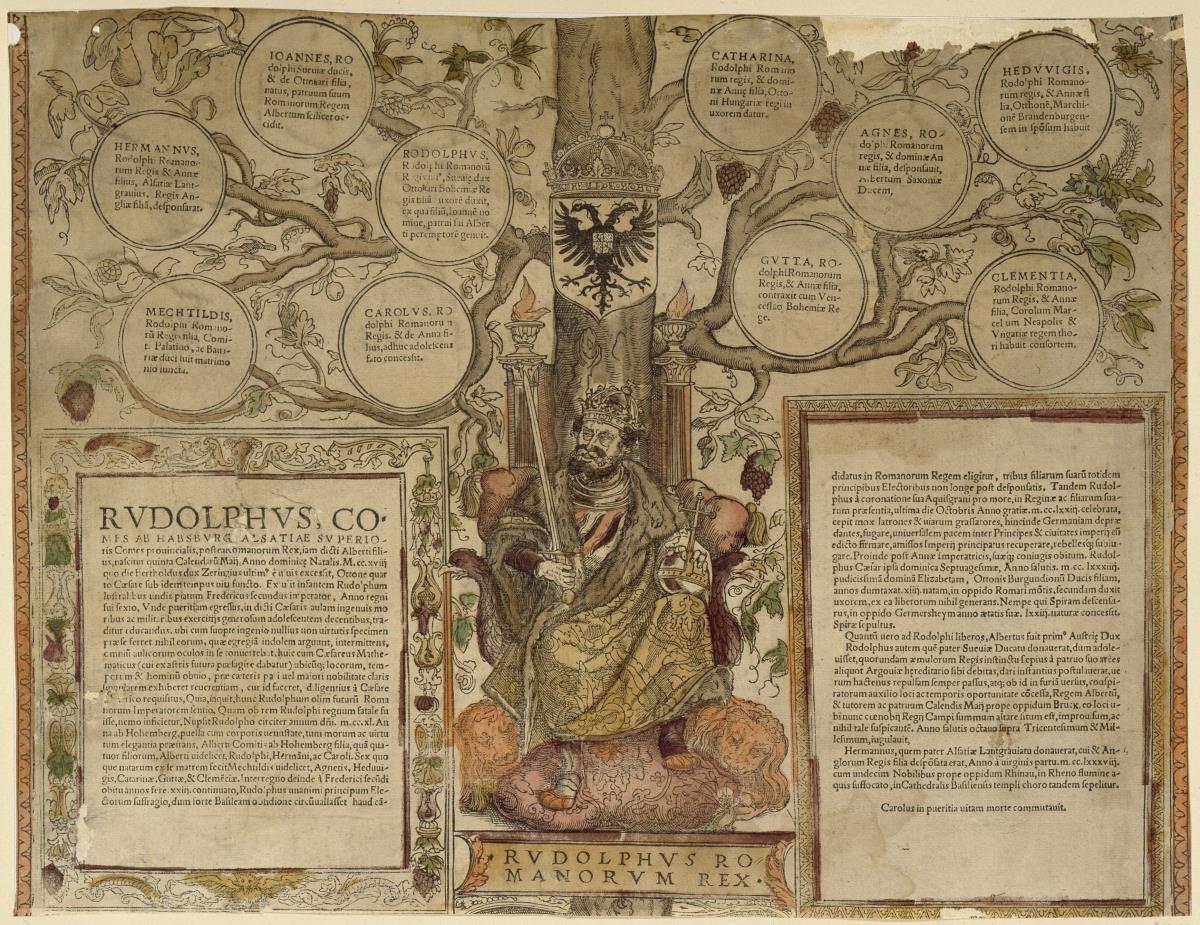 IOANNES, RO
dolphi Sueuiæ ducis,
& de Ottocari filia,
natus, patruum suum
Romanorum Regem
Albertum scilicet oc-
cidit.
HERMANNVS,
Rodolphi Romano-
rum Regis & Annæ
filius, Alsatiæ Lant-
grauius, Regis An-
gliæ filiā, desponsarat.
RODOLPHVS,
Rodolphi Romanorū
Regis fil⁹, Sueuiæ dux
Ottokari Bohemiæ Re
gis filiā uxorē duxit,
ex qua filiū, Ioannē no
mine, patrui sui Alber
ti peremptorē genuit.
MECHTILDIS,
Rodolphi Romano-
rū Regis filia, Comi-
ti Palatino, ac Baua-
riæ duci fuit matrimo
nio iuncta.
CAROLVS, RO
dolphi Romanorum
Regis, & de Anna fi-
lius, adhuc adolescens
fato concessit.
CATHARINA,
Rodolphi Romano
rum regis, & domi-
næ Annę filia, Otto-
ni Hungariæ regi in
uxorem datur.
HEDVVIGIS,
Rodolphi Romano-
rum regis, & Annæ fi
lia, Otthonē, Marchi-
onē Brandenburgen-
sem in spōsum habuit
AGNES, RO-
dolphi Romanorum
regis, & dominæ An
næ filia, desponsauit,
Albertum Saxoniæ
Ducem,
GVTTA, RO-
dolphi Romanorum
Regis, & Annæ filia,
contraxit cum Ven-
ceslao Bohemiæ Re
ge.
CLEMENTIA,
Rodolphi Romano-
rum Regis, & Annæ
filia, Carolum Mar-
cel um Neapolis &
Vngatiæ regem tho-
ri habuit consortem.
RVDOLPHVS, CO-
MES AB HABSBVRG, ALSATIAE SVPERIO-
ris Comes prouincialis, postea Romanorum Rex, iam dicti Alberti fili-
us, nascitur quinta Calendarū Maij. Anno dominicę Natalis. M. cc. xviij
quo die Bertholdus dux Zeringius ultim⁹ ē uiuis excessit, Ottone quar
to Cæsare sub idem tempus uita functo. Ex ut infantem Rudolphum
lustralibus undis piatum Fredericus secundus imperator, Anno regni
sui sexto, Vnde pueritiam egressus, in dicti Cæsaris aulam ingenuis mo
ribus ac militaribus exercitijs generosum adolescentem decentibus, tra-
ditur educandus, ubi cum suopte ingenio nullius non uirtutis specimen
præ se ferret nihil eorum, quæ egregiā indolem arguunt, intermittens,
omnium aulicorum oculos in se conuertebat, huic cum Cæsareus Mathe-
maticus (cui ex astris futura præsagire dabatur) ubicūq; locorum, tem-
porum & hominū obuio, præ cæteris pari uel maiori nobilitate claris
singularem exhiberet reuerentiam, cur id faceret, diligentius à Cæsare
Frederico requisitus, Quia, inquit, hunc Rudolphum olim futurū Roma
norum Imperatorem sentio, Quam ob rem Rudolphi regnum fatale fu
isse, nemo inficietur, Nupsit Rudolpho circiter annum dñi. M. cc. xl. An
na ab Hohemberg, puella cum corporis uenustate, tum morum ac uirtu
tum elegantia præstans, Alberti Comitis ab Hohemberg filia, quā qua-
tuor filiorum, Alberti uidelicet, Rudolphi, Hermāni, ac Caroli. Sex quo
que natarum ex se matrem fecit, Mechtildis uidelicet, Agnetis, Heduui-
gis, Catarinæ, Guttæ, & Clemēciæ. Interregno deinde à Frederici secūdi
obitu annos fere. xxiij. continuato, Rudolphus unanimi principum Ele-
ctorum suffragio, dum forte Basileam obsidione circūuallasset haud cā-
didatus in Romanorum Regem eligitur, tribus filiarum suarū totidem
principibus Electoribus non longe post desponsatis. Tandem Rudol-
phus à coronatione sua Aquisgrani pro more, in Reginæ ac filiarum sua-
rum præsentia, ultima die Octobris Anno gratiæ. m. cc. lxxiij. celebrata,
cepit mox latrones & uiarum grassatores, hincinde Germaniam depræ
dantes, fugare, uniuersalem pacem inter Principes & ciuitates imperij
edicto firmare, amissos Imperij principatus recuperare, rebellesq; subiu-
ghare. Proinde post Annæ imperatricis, suæq; coniugis obitum. Rudol-
phus Cæsar ipsa dominica Septuagesimæ, Anno salutis. m. cc. lxxxiiij.
pudicissimā dominā Elizabetam, Ottonis Burgundionū Ducis filiam,
annos dumtaxat. xiiij. natam, in oppido Romari mōtis, secundam duxit
uxorem, ex ea liberorum nihil generans. Nempe qui Spiram descensu-
rus, in oppido Germersheym anno ætatis suæ. lxxiij. naturæ concessit.
Spiræ sepultus.
Quantū uero ad Rodolphi liberos, Albertus fuit prim⁹ Austrię Dux
Rodolphus autem quē pater Sueuiæ Ducatu donauerat, dum adole-
uisset, quorundam æmulorum Regis instinctu sepius à patruo suo arces
aliquot Argouiæ hereditario sibi debitas, dari instantius postulauerat, ue
rum hactenus repulsam semper passus, atq; ob id in furiā uersus, conspi-
ratorum auxilio loci ac temporis oportunitate cōcessa, Regem Albertū,
& tutorem ac patruum Calendis Maij prope oppidum Bruck, eo loci u-
bi nunc cœnobij Regij Campi summum altare situm est, improuisum, ac
nihil tale suspicantē. Anno salutis octauo supra Tricentesimum & Mil-
lesimum, iugulauit,
Hermannus, quem pater Alsatiæ Lantgrauiatu donauerat, cui & An-
glorum Regis filia despōsata erat, Anno à uirginis partu. m. cc. lxxxviij.
cum undecim Nobilibus prope oppidum Rhinau, in Rheno flumine a-
quis suffocato, in Cathedralis Basiliensis templi choro tandem sepelitur.
Carolus in pueritia uitam morte commutauit.
RVDOLPHVS RO
MANORVM REX.